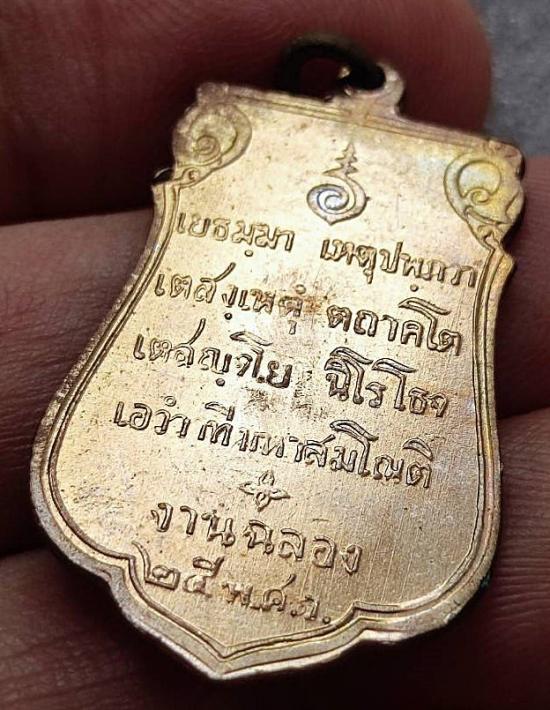 เยธมฺมา เหตุปพฺภวา
เตสํฺเหตุํ ตถาคโต
เตสญฺจโย นิโรโธจ
เอวํวาทีมหาสมโณติ
งานฉลอง
๒๕ พ.ศ.ว.